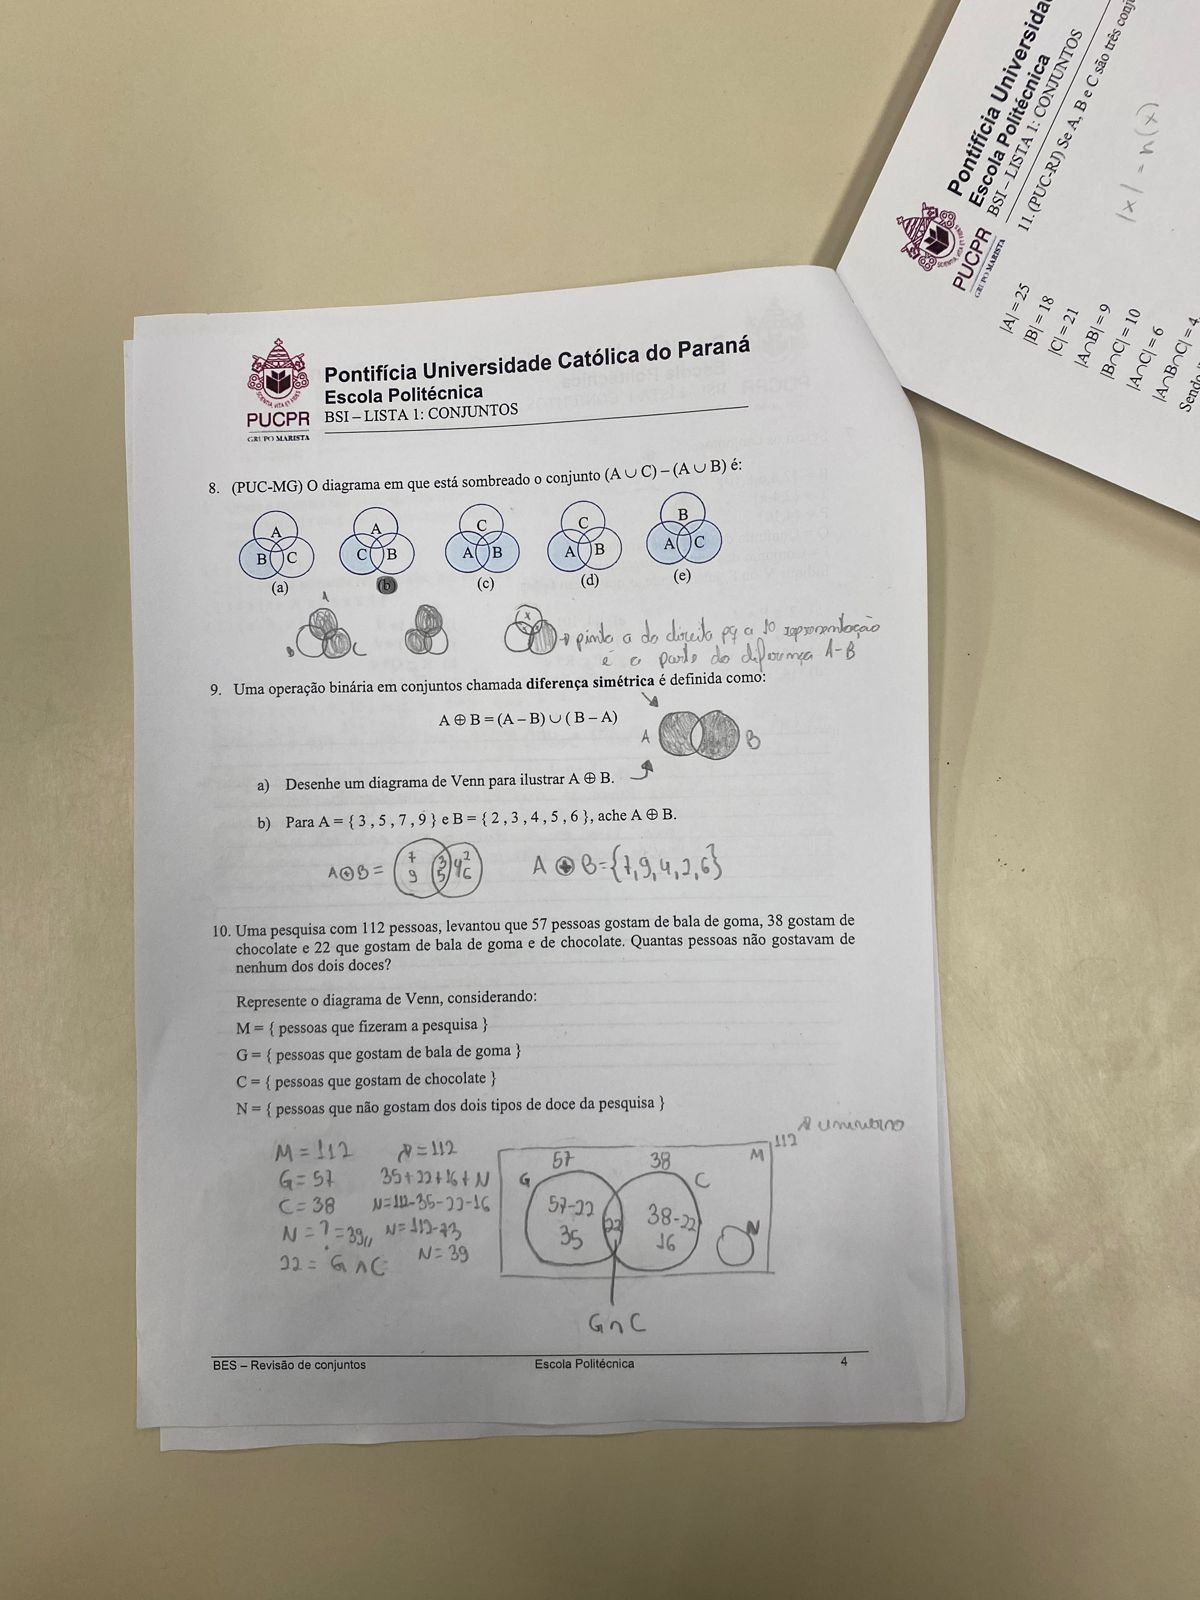 Pontifícia Universidade Católica do Paraná
Escola Politécnica
BSI – LISTA 1: CONJUNTOS
PUCPR
GRUPO MARISTA
8. (PUC-MG) O diagrama em que está sombreado o conjunto (A ∪ C) – (A ∪ B) é:
A B C
A C B
C A B
C A B
B A C
(a) (b) (c) (d) (e)
A
B C
x
pinta a do direito pq a 1º representação
é a parte do diferença A-B
9. Uma operação binária em conjuntos chamada diferença simétrica é definida como:
A ⊕ B = (A – B) ∪ ( B – A)
A B
a) Desenhe um diagrama de Venn para ilustrar A ⊕ B.
b) Para A = { 3 , 5 , 7 , 9 } e B = { 2 , 3 , 4 , 5 , 6 }, ache A ⊕ B.
A⊕B = 7 9 3 5 4 2 6
A ⊕ B={7,9,4,2,6}
10. Uma pesquisa com 112 pessoas, levantou que 57 pessoas gostam de bala de goma, 38 gostam de
chocolate e 22 que gostam de bala de goma e de chocolate. Quantas pessoas não gostavam de
nenhum dos dois doces?
Represente o diagrama de Venn, considerando:
M = { pessoas que fizeram a pesquisa }
G = { pessoas que gostam de bala de goma }
C = { pessoas que gostam de chocolate }
N = { pessoas que não gostam dos dois tipos de doce da pesquisa }
M = 112
G = 57
C = 38
N = ? = 39,,
22 = G ∩ C
=112
35+22+16+N
N=112-35-22-16
N=112-73
N= 39
112 universo
57 38 M
G C
57-22 22 38-22 N
35 16
G∩C
BES – Revisão de conjuntos Escola Politécnica 4
Pontifícia Universida
Escola Politécnica
BSI – LISTA 1: CONJUNTOS
PUCPR
GRUPO MARISTA
11. (PUC-RJ) Se A, B e C são três conj
|A| = 25
|B| = 18
|C| = 21
|A∩B| = 9
|B∩C| = 10
|A∩C| = 6
|A∩B∩C| = 4
|x| = n(x)